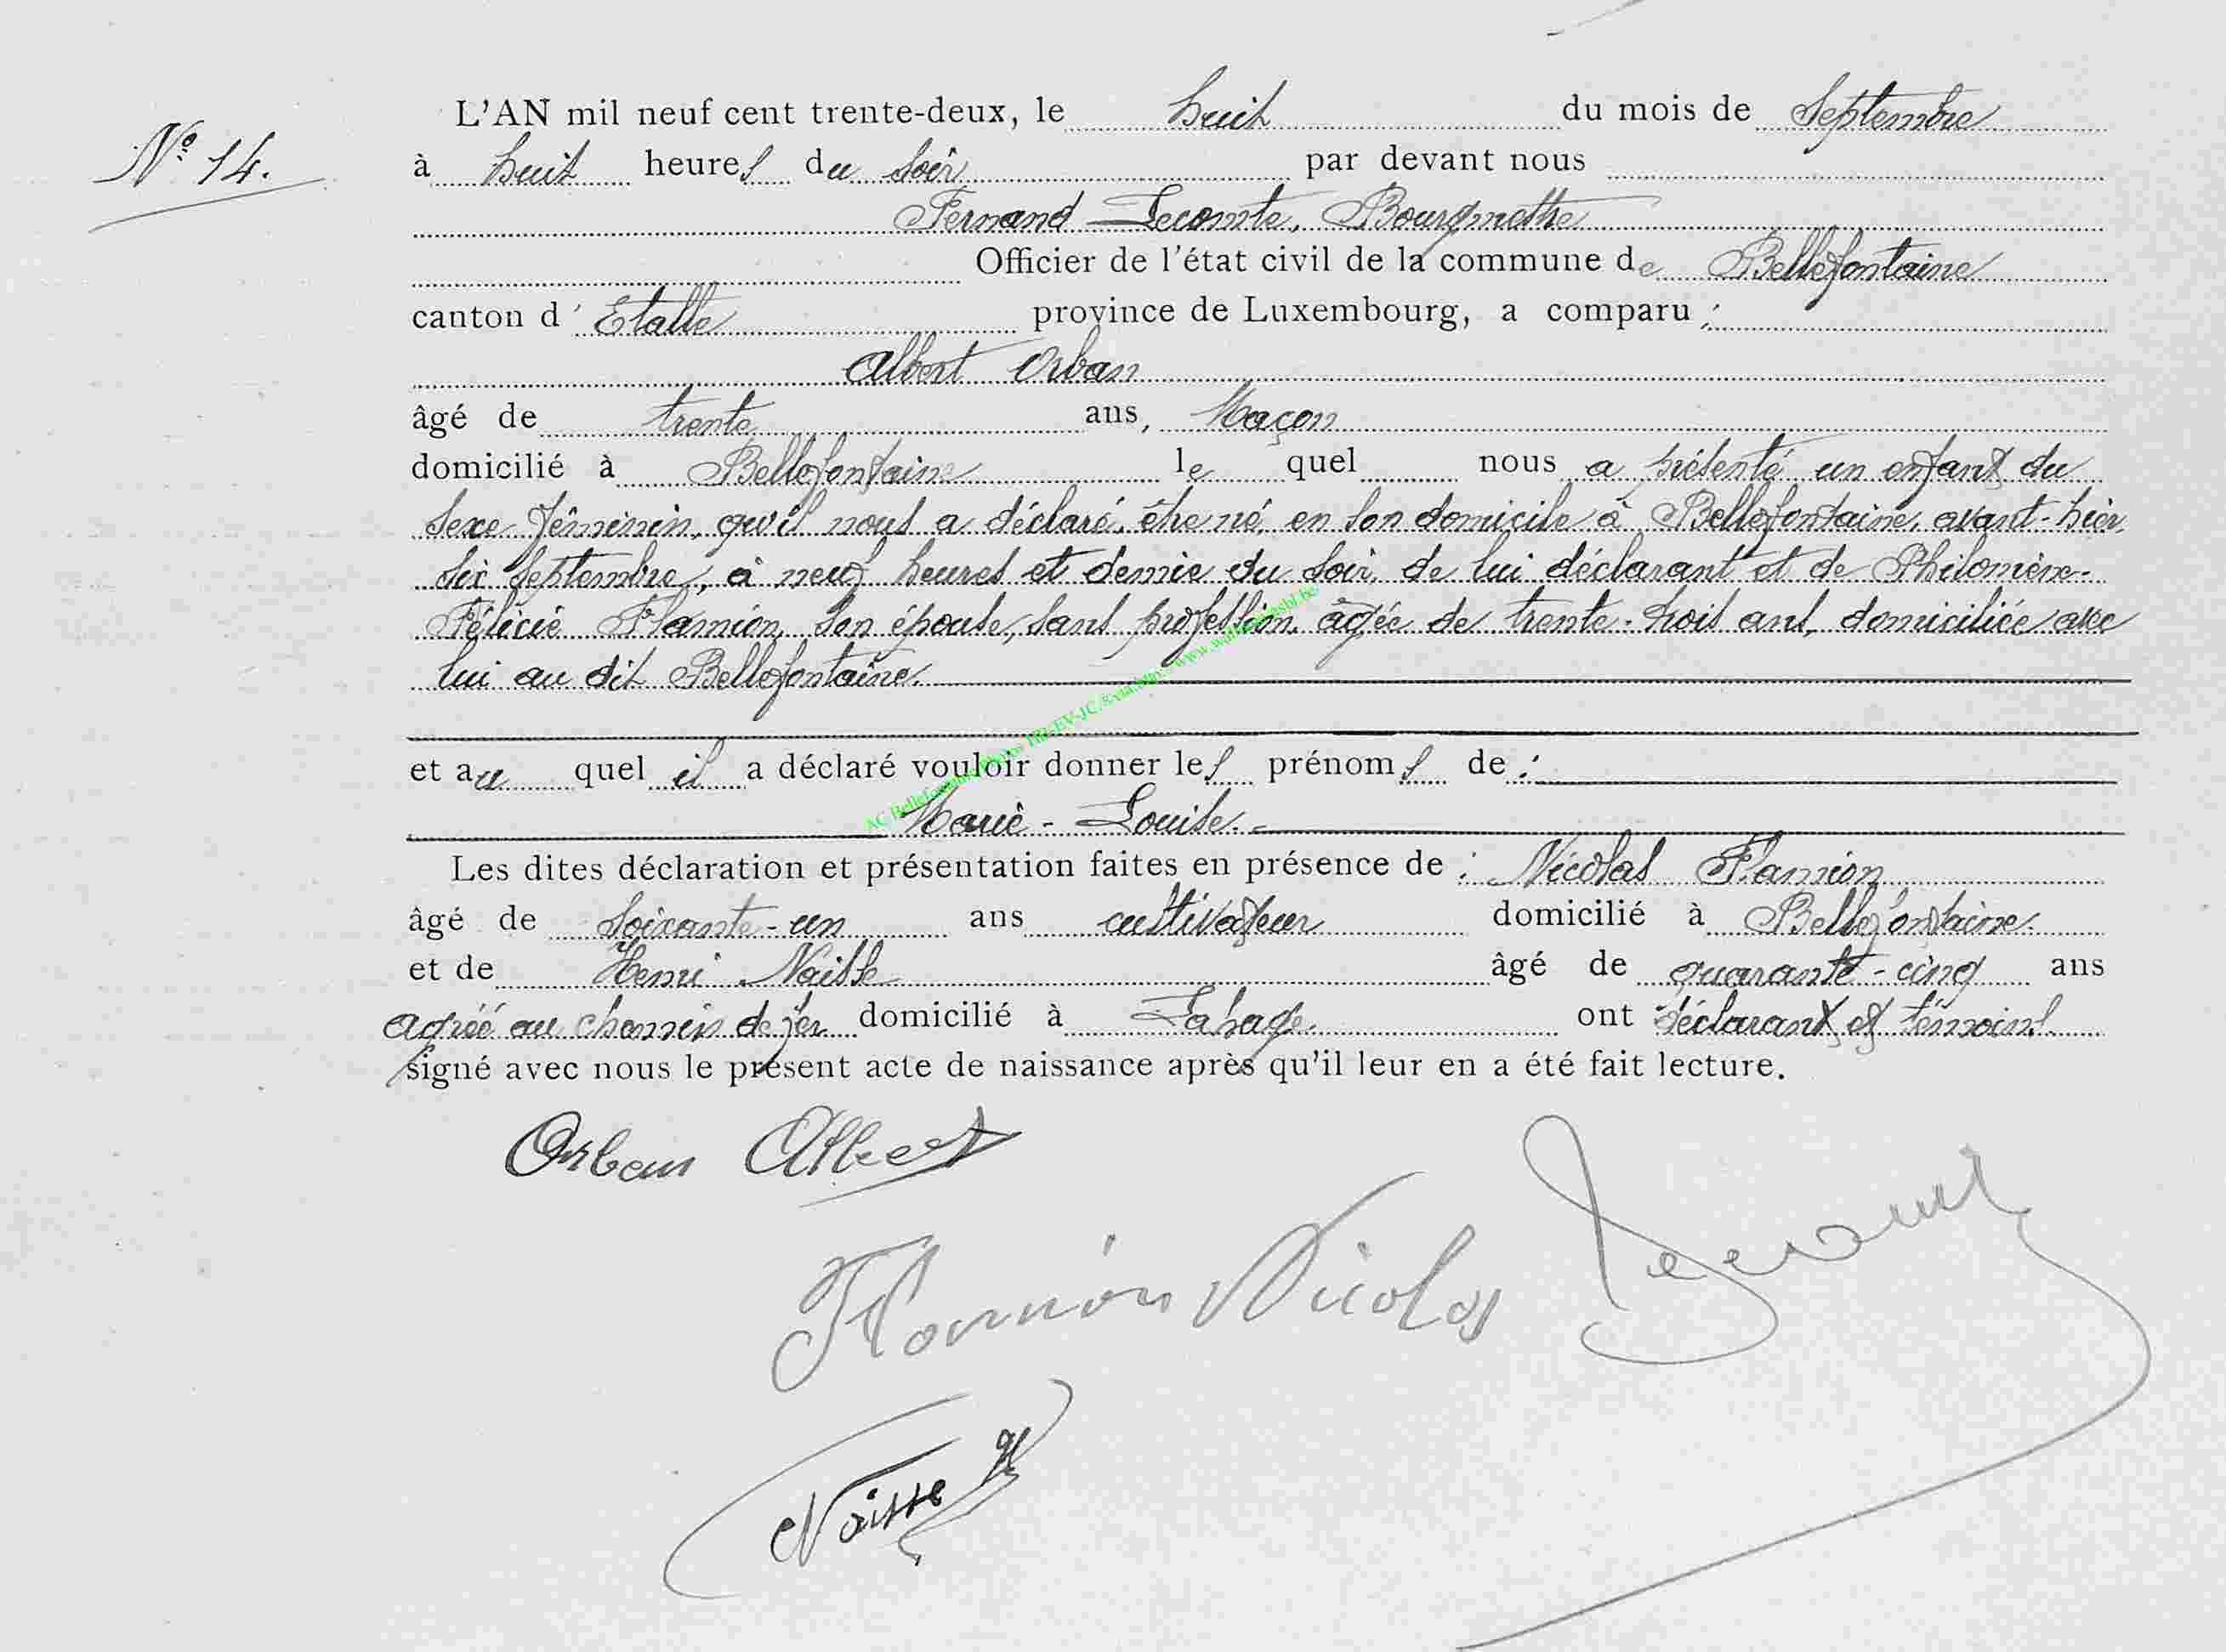 N° 14.
L'AN mil neuf cent trente-deux, le huit du mois de Septembre
à huit heures du soir par devant nous
Fernand Lecomte, Bourgmestre
Officier de l'état civil de la commune de Bellefontaine
canton d'Etalle province de Luxembourg, a comparu :
Albert Orban
âgé de trente ans, Maçon
domicilié à Bellefontaine lequel nous a présenté un enfant du
sexe féminin, qu'il nous a déclaré être né, en son domicile à Bellefontaine, avant-hier
six septembre, à neuf heures et demie du soir, de lui déclarant et de Philomène-
Félicie Flamion, son épouse, sans profession, âgée de trente-trois ans, domiciliée avec
lui au dit Bellefontaine.
et au quel il a déclaré vouloir donner les prénoms de :
Marie-Louise.
Les dites déclaration et présentation faites en présence de : Nicolas Flamion
âgé de soixante-un ans cultivateur domicilié à Bellefontaine
et de Henri Naisse âgé de quarante-cinq ans
agréé au chemin de fer domicilié à Lahage ont déclarant et témoins
signé avec nous le présent acte de naissance après qu'il leur en a été fait lecture.
Orban Albert
Flamion Nicolas
Naisse H